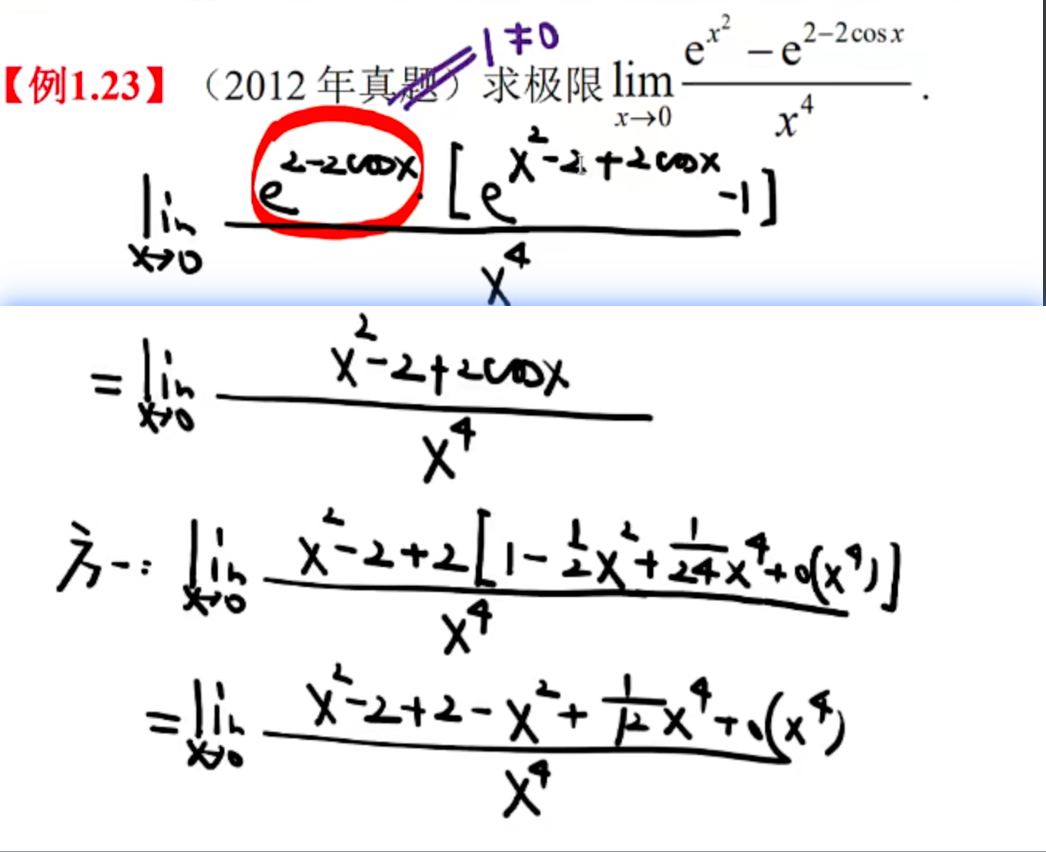 【例1.23】（2012 年真题）求极限 lim_{x→0} \frac{e^{x^2} - e^{2-2cosx}}{x^4} . 1≠0
lim_{x→0} \frac{e^{2-2cosx} · [e^{x^2-2+2cosx} -1]}{x^4}
= lim_{x→0} \frac{x^2-2+2cosx}{x^4}
方一: lim_{x→0} \frac{x^2-2+2[1-\frac{1}{2}x^2+\frac{1}{24}x^4+o(x^4)]}{x^4}
= lim_{x→0} \frac{x^2-2+2-x^2+\frac{1}{12}x^4+o(x^4)}{x^4}